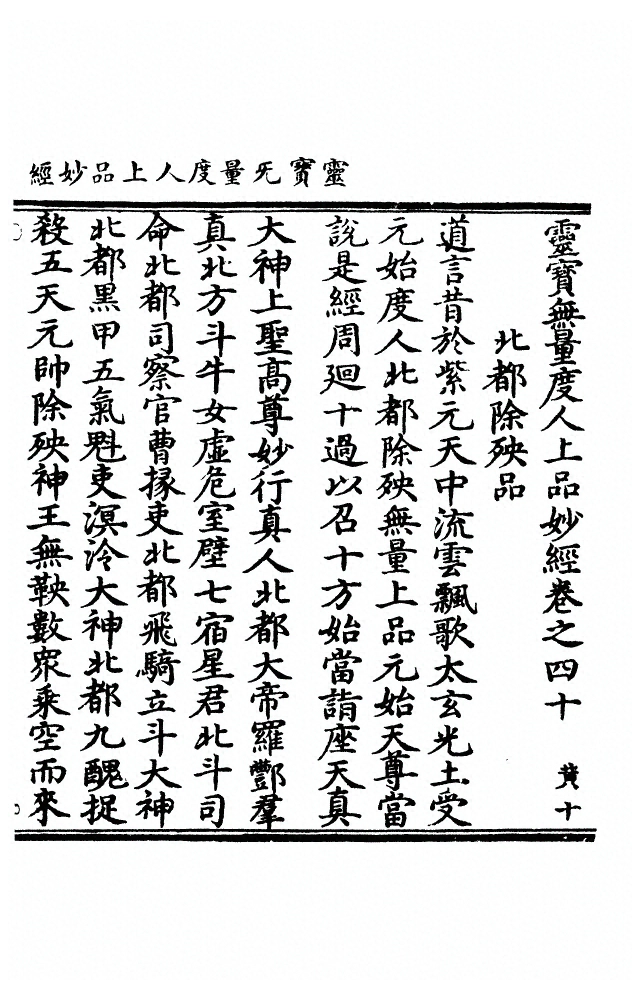 靈寶无量度人上品妙經
靈寶無量度人上品妙經卷之四十 黄十
北都除殃品
道言昔於紫元天中流雲飄歌太玄光土受
元始度人北都除殃無量上品元始天尊當
說是經周迴十過以召十方始當詣座天真
大神上聖高尊妙行真人北都大帝羅酆羣
真北方斗牛女虛危室壁七宿星君北斗司
命北都司察官曹掾吏北都飛騎立斗大神
北都黑甲五氣魁吏溟泠大神北都九醜捉
殺五天元帥除殃神王無鞅數衆乘空而來